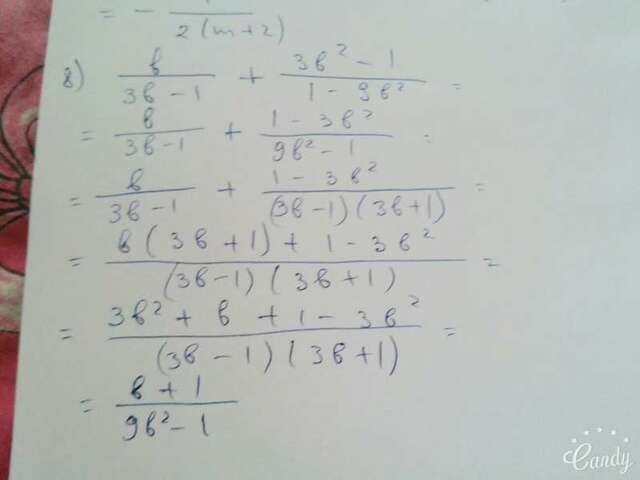 = - —/2(m+2)
8) b/(3b - 1) + (3b² - 1)/(1 - 9b²) =
= b/(3b-1) + (1 - 3b²)/(9b² - 1) =
= b/(3b - 1) + (1 - 3b²)/((3b-1)(3b+1)) =
= (b(3b+1) + 1 - 3b²)/((3b-1)(3b+1)) =
= (3b² + b + 1 - 3b²)/((3b - 1)(3b+1)) =
= (b + 1)/(9b² - 1)
Candy